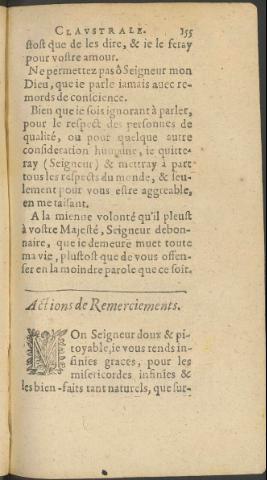 CLAVSTRALE. 155
stost que de les dire, & ie le feray
pour vostre amour.
Ne permettez pas ô Seigneur mon
Dieu, que ie parle iamais auec re-
mords de conscience.
Bien que ie sois ignorant à parler,
pour le respect des personnes de
qualité, ou pour quelque autre
consideration humaine, ie quitte-
ray (Seigneur) & mettray à part
tous les respects du monde, & seu-
lement pour vous estre aggreable,
en me taisant.
A la mienne volonté qu'il pleust
à vostre Majesté, Seigneur debon-
naire, que ie demeure muet toute
ma vie, plustost que de vous offen-
ser en la moindre parole que ce soit.
Actions de Remerciements.
MOn Seigneur doux & pi-
toyable, ie vous rends in-
finies graces, pour les
misericordes infinies &
les bien-faits tant naturels, que sur-